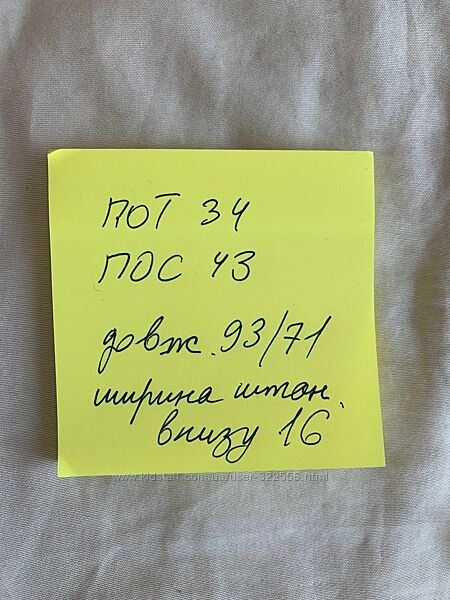 ПОТ 34
ПОС 43
довж. 93/71
ширина штан.
внизу 16
www.kidstaff.com.ua/user-322556.html